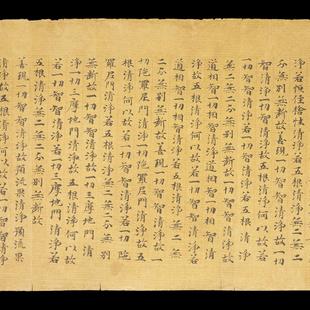 淨若恒住捨性清淨若五根清淨無二無二
分無別無斷故善現一切智智清淨故一切
智清淨一切智清淨故五根清淨何以故若
一切智智清淨若一切智清淨若五根清淨
無二無二分無別無斷故一切智智清淨故
道相智一切相智清淨道相智一切相智清
淨故五根清淨何以故若一切智智清淨若
道相智一切相智清淨若五根清淨無二無
二分無別無斷故善現一切智智清淨故一
切陁羅尼門清淨一切陁羅尼門清淨故五
根清淨何以故若一切智智清淨若一切陁
羅尼門清淨若五根清淨無二無二分無別
無斷故一切智智清淨故一切三摩地門清
淨一切三摩地門清淨故五根清淨何以故
若一切智智清淨若一切三摩地門清淨若
五根清淨無二無二分無別無斷故
善現一切智智清淨故預流果清淨預流果
清淨故五根清淨何以故若一切智智清淨